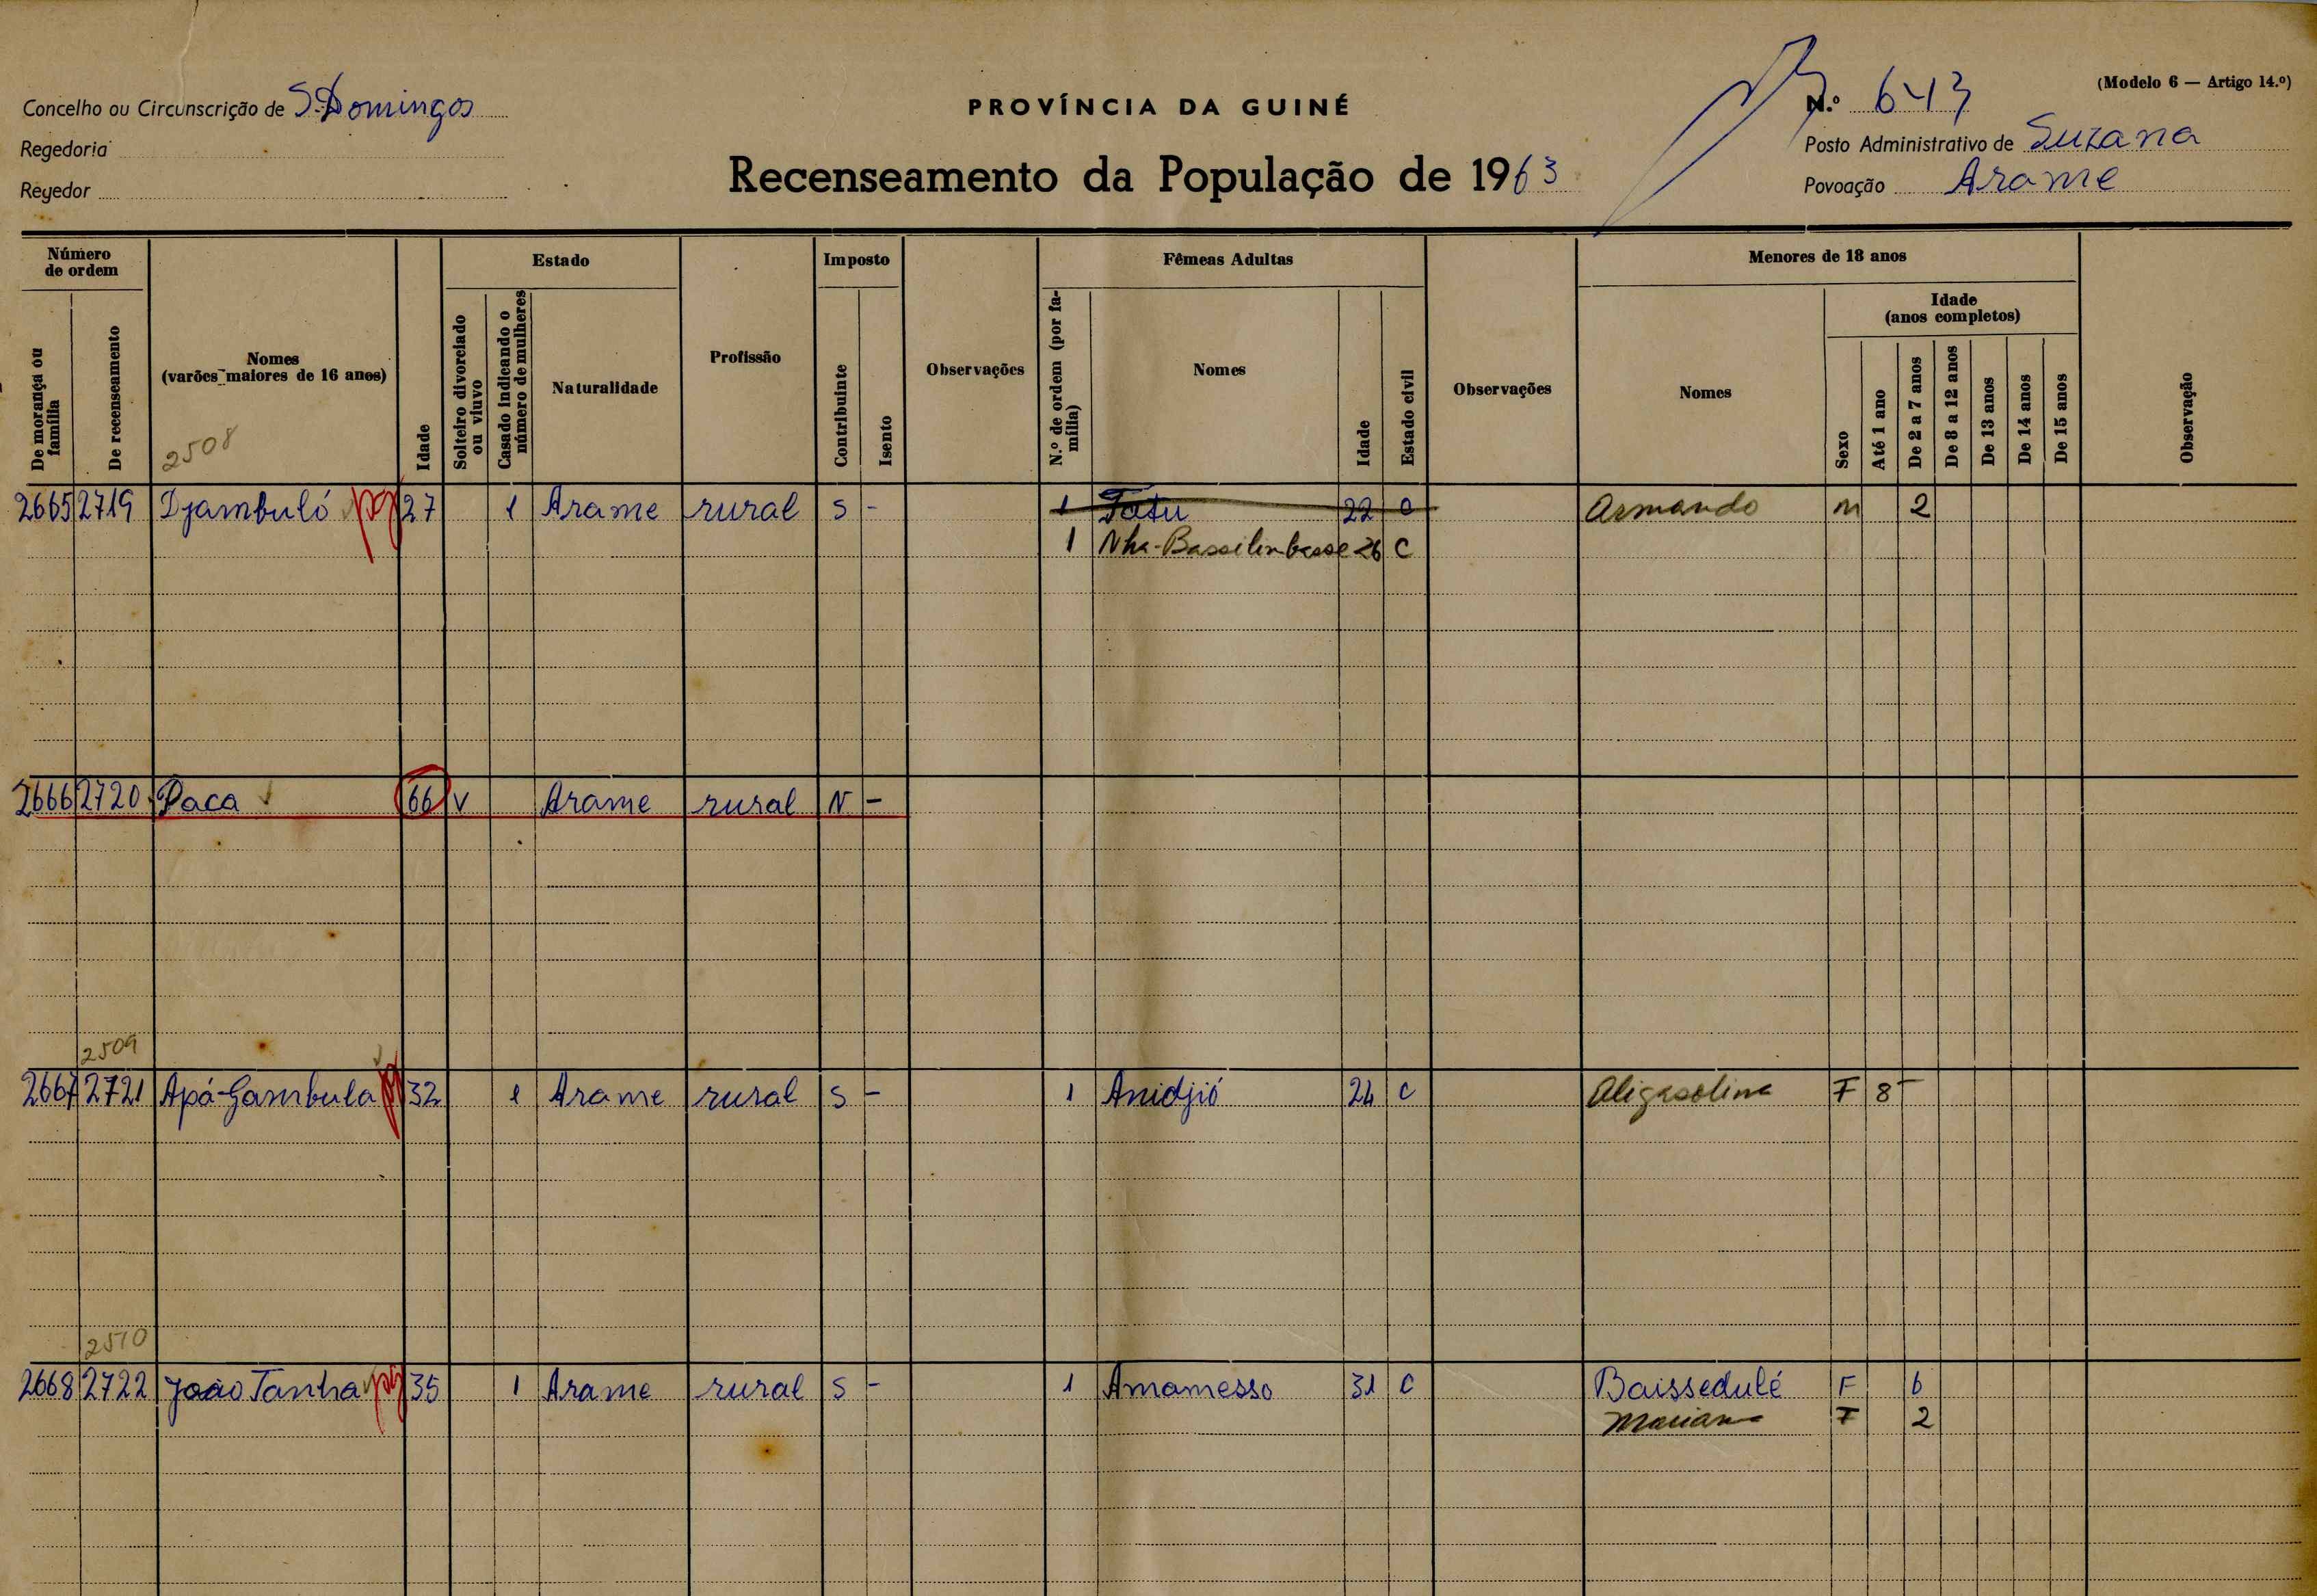 (Modelo 6 — Artigo 14.º)
Concelho ou Circunscrição de S. Domingos
PROVÍNCIA DA GUINÉ
N.º 643
Regedoria
Posto Administrativo de Suzana
Recenseamento da População de 1963
Regedor
Povoação Arame
Número de ordem
Estado
Imposto
Fêmeas Adultas
Menores de 18 anos
Idade (anos completos)
De morança ou família
De recenseamento
Nomes (varões maiores de 16 anos)
Idade
Solteiro divorciado ou viuvo
Casado indicando o número de mulheres
Naturalidade
Profissão
Contribuinte
Isento
Observações
N.º de ordem (por família)
Nomes
Idade
Estado civil
Observações
Nomes
Sexo
Até 1 ano
De 2 a 7 anos
De 8 a 12 anos
De 13 anos
De 14 anos
De 15 anos
Observação
2508
2665 2719 Djambuló pg 27 1 Arame rural S - 1 Fatu 22 C Armando M 2
1 Nha-Bassilimbasse 26 C
2666 2720 Paca 66 V Arame rural N -
2509
2667 2721 Apá-Gambula pg 32 1 Arame rural S - 1 Anidjió 24 C Aligasolina F 8
2510
2668 2722 João Tanha pg 35 1 Arame rural S - 1 Amamesso 31 C Baissedulé F 6
Mariana F 2